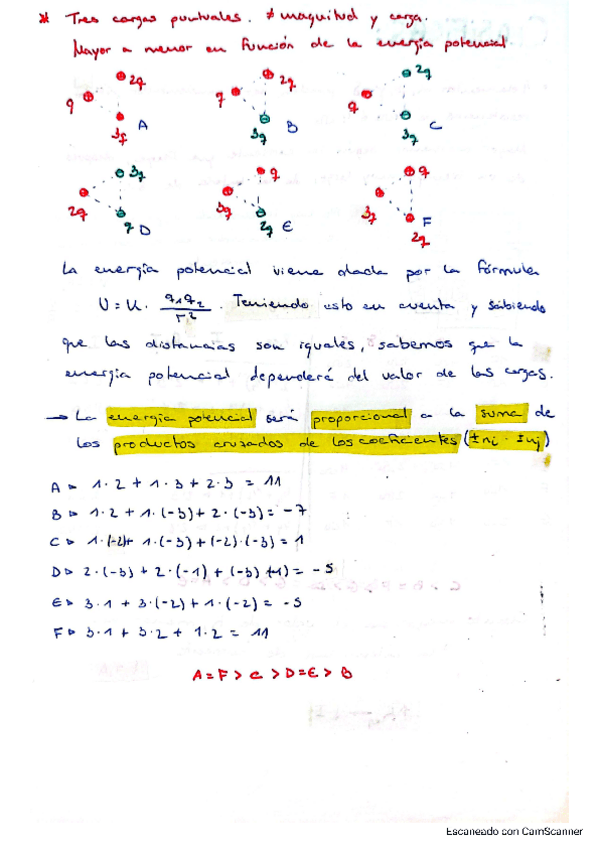 * Tres cargas puntuales. ≠ magnitud y carga.
Mayor a menor en función de la energía potencial
q 2q 3q A
q 2q 3q B
q 2q 3q C
2q 3q q D
3q q 2q E
3q q 2q F
La energía potencial viene dada por la fórmula
U = K · q1q2 / r² . Teniendo esto en cuenta y sabiendo
que las distancias son iguales, sabemos que la
energía potencial dependerá del valor de las cargas.
→ La energía potencial será proporcional a la suma de
los productos cruzados de los coeficientes (±ni · ±nj)
A ▹ 1·2 + 1·3 + 2·3 = 11
B ▹ 1·2 + 1·(-3) + 2·(-3) = -7
C ▹ 1·(-2) + 1·(-3) + (-2)·(-3) = 1
D ▹ 2·(-3) + 2·(-1) + (-3)·(-1) = -5
E ▹ 3·1 + 3·(-2) + 1·(-2) = -5
F ▹ 3·1 + 3·2 + 1·2 = 11
A = F > C > D = E > B
Escaneado con CamScanner